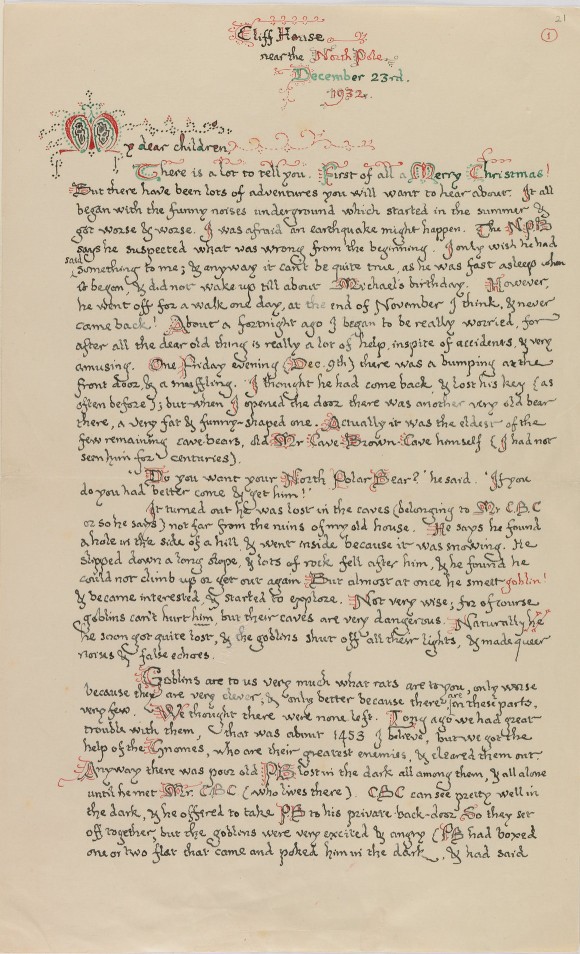 21
1
Cliff House
near the North Pole.
December 23rd.
1932.
My dear children,
There is a lot to tell you. First of all a Merry Christmas!
But there have been lots of adventures you will want to hear about. It all
began with the funny noises underground which started in the summer &
got worse & worse. I was afraid an earthquake might happen. The NPB
says he suspected what was wrong from the beginning. I only wish he had
said something to me; & anyway it can't be quite true, as he was fast asleep when
it began, & did not wake up till about Michael's birthday. However,
he went off for a walk one day, at the end of November I think, & never
came back! About a fortnight ago I began to be really worried, for
after all the dear old thing is really a lot of help, inspite of accidents, & very
amusing. One Friday evening (Dec. 9th) there was a bumping at the
front door, & a snuffling. I thought he had come back, & lost his key (as
often before); but when I opened the door there was another very old bear
there, a very fat & funny-shaped one. Actually it was the eldest of the
few remaining cave-bears, old Mr Cave-Brown-Cave himself (I had not
seen him for centuries).
"Do you want your North Polar Bear?" he said. "If you
do you had better come & get him!"
It turned out he was lost in the caves (belonging to Mr C.B.C
or so he says) not far from the ruins of my old house. He says he found
a hole in the side of a hill & went inside because it was snowing. He
slipped down a long slope, & lots of rock fell after him, & he found he
could not climb up or get out again. But almost at once he smelt goblin!
& became interested, & started to explore. Not very wise; for of course
goblins can't hurt him, but their caves are very dangerous. Naturally he
soon got quite lost, & the goblins shut off all their lights, & made queer
noises & false echoes.
Goblins are to us very much what rats are to you, only worse
because they are very clever; & only better because there are, in these parts,
very few. We thought there were none left. Long ago we had great
trouble with them, that was about 1453 I believe, but we got the
help of the Gnomes, who are their greatest enemies, & cleared them out.
Anyway there was poor old PB lost in the dark all among them, & all alone
until he met Mr. CBC (who lives there). CBC can see pretty well in
the dark, & he offered to take PB to his private back-door. So they set
off together, but the goblins were very excited & angry (PB had boxed
one or two flat that came and poked him in the dark, & had said